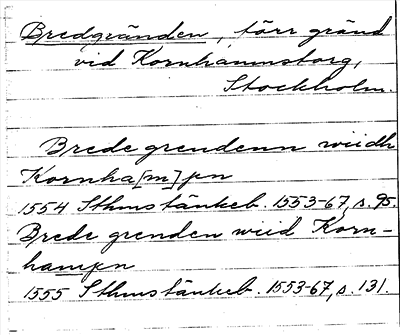 Bredgränden, förr gränd
vid Kornhamnstorg,
Stockholm.
Brede grendenn wiidh
Kornha[m]pn
1554 Sthms tänkeb. 1553-67, s. 95.
Brede grenden wiid Korn-
hampn
1555 Sthms tänkeb. 1553-67, s. 131.